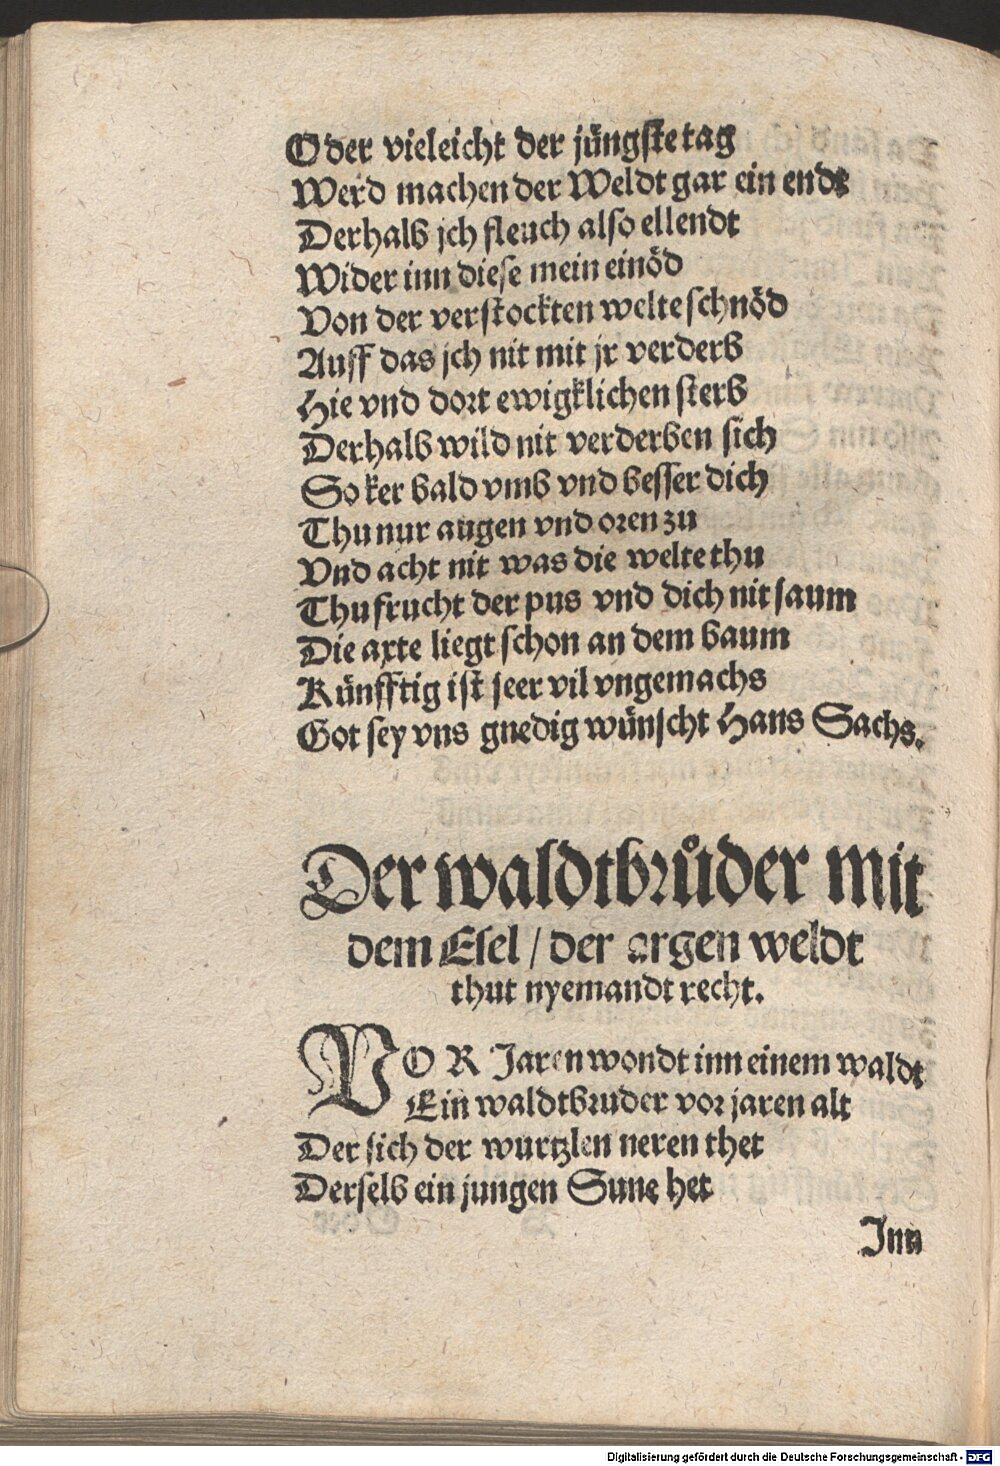 Oder vieleicht der jüngste tag
Werd machen der Weldt gar ein endt
Derhalb jch fleuch also ellendt
Wider inn diese mein einöd
Von der verstockten welte schnöd
Auff das jch nit mit jr verderb
Hie vnd dort ewigklichen sterb
Derhalb wild nit verderben sich
So ker bald vmb vnd besser dich
Thu nur augen vnd oren zu
Vnd acht nit was die welte thu
Thu frucht der pus vnd dich nit saum
Die axte liegt schon an dem baum
Künfftig ist seer vil vngemachs
Got sey vns gnedig wünscht Hans Sachs.
Der waldtbrůder mit
dem Esel / der argen weldt
thut nyemandt recht.
VOR Jaren wondt inn einem waldt
Ein waldtbruder vor jaren alt
Der sich der wurtzlen neren thet
Derselb ein jungen Sune het
Inn
Digitalisierung gefördert durch die Deutsche Forschungsgemeinschaft - DFG